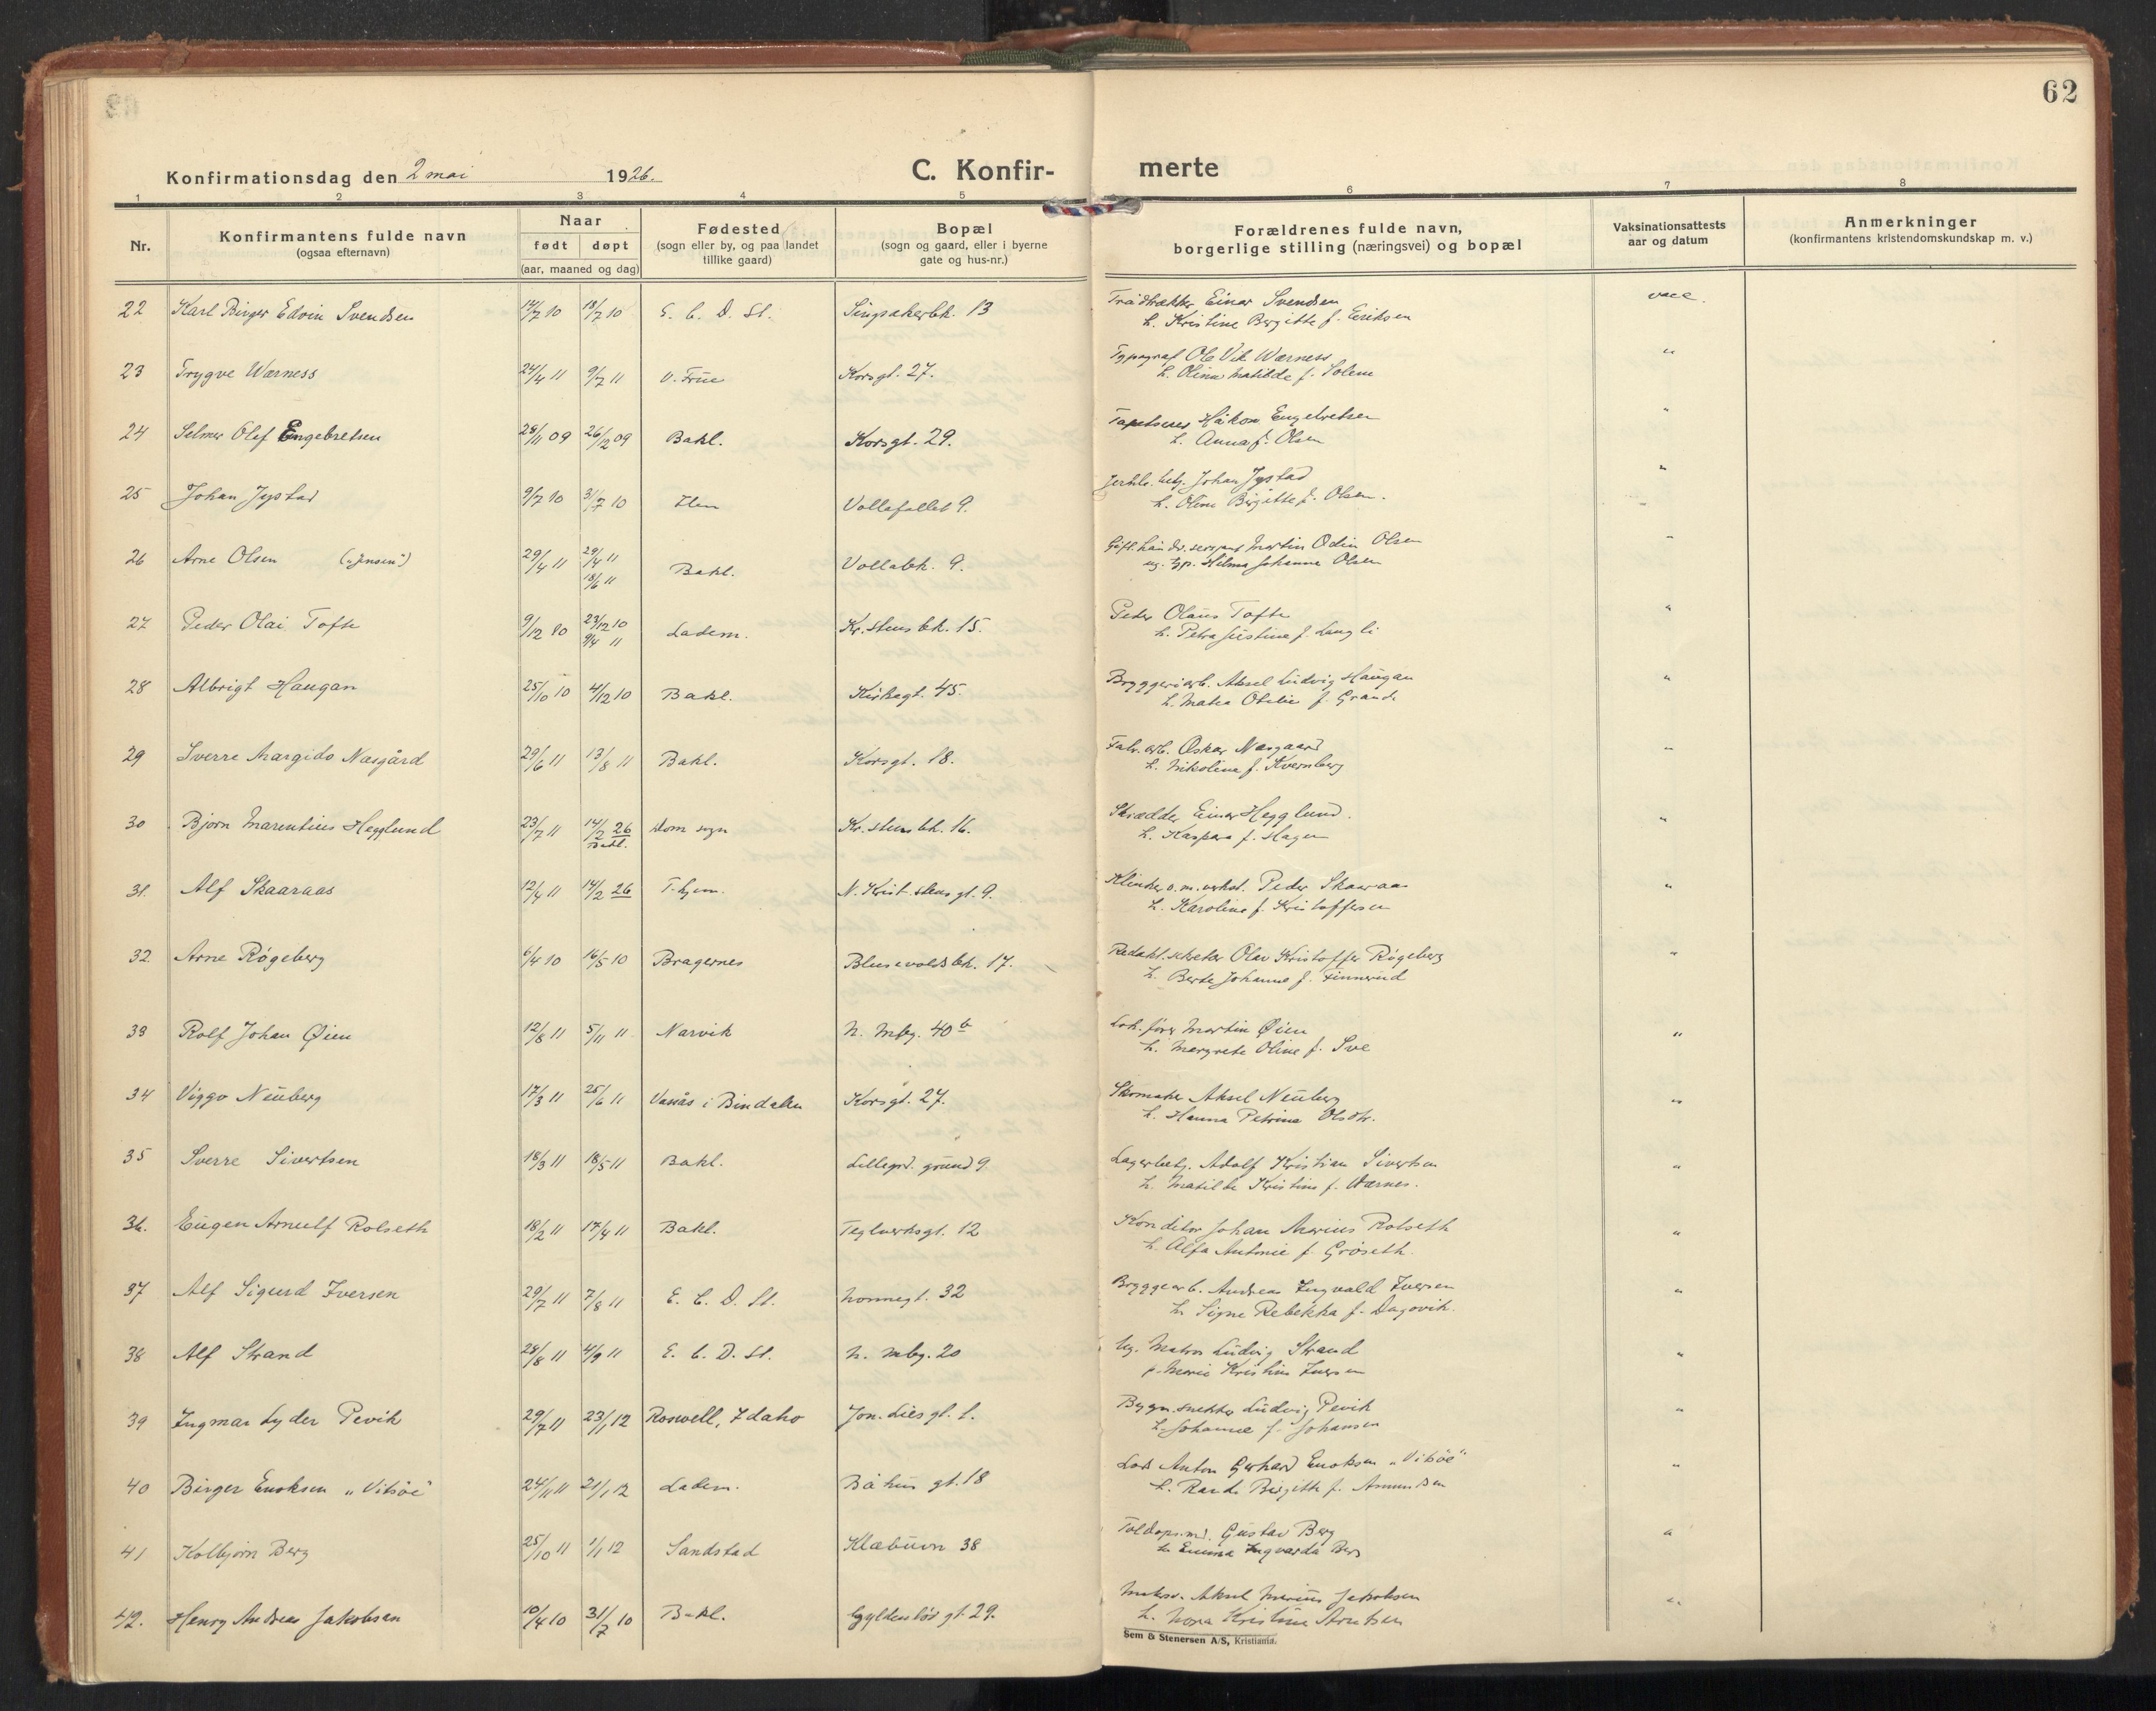 62
Konfirmationsdag den 2 mai 1926.
C. Konfir-
merte
1 2 3 4 5 6 7 8
Nr.
Konfirmantens fulde navn
(ogsaa efternavn)
Naar
født døpt
(aar, maaned og dag)
Fødested
(sogn eller by, og paa landet
tillike gaard)
Bopæl
(sogn og gaard, eller i byerne
gate og hus-nr.)
Forældrenes fulde navn,
borgerlige stilling (næringsvei) og bopæl
Vaksinationsattests
aar og datum
Anmerkninger
(konfirmantens kristendomskundskap m. v.)
22 Karl Birger Edvin Svendsen 14/7 10 18/7 10 E. C. D. St. Singsakerbk. 13 Trådtrækker Einar Svendsen vacc.
h. Kristine Bergitte f. Eriksen
23 Trygve Wærness 24/4 11 9/7 11 V. Frue Korsgt. 27. Typograf Ole Vik Wærness "
h. Olina Matilde f. Solem
24 Selmer Olaf Engebretsen 28/11 09 26/12 09 Bakl. Korsgt. 29. Tapetserer Håkon Engebretsen "
h. Anna f. Olsen
25 Johan Jystad 9/7 10 31/7 10 Ilen Vollafallet 9. Jernb. betj. Johan Jystad "
h. Oline Birgitte f. Olsen.
26 Arne Olsen ("Jensen") 29/4 11 29/4 11 Bakl. Vollabk. 9. Gift. sersjant Martin Odin Olsen "
18/6 11 ug. Hilma Johanna Olsen
27 Peder Olai Tofte 9/12 10 23/12 10 Ladem. Kr. stensbk. 15. Peder Olaus Tofte "
9/4 11 h. Petra Justine f. Langli
28 Albrigt Haugan 25/10 10 4/12 10 Bakl. Kirkegt. 45. Bryggeriarb. Aksel Ludvig Haugan "
h. Matea Otelie f. Grande
29 Sverre Margido Næsgård 29/6 11 13/8 11 Bakl. Korsgt. 18. Fabr. arb. Oskar Næsgaard "
h. Nikoline f. Kvernberg
30 Bjørn Marentius Hegglund 23/7 11 14/2 26 Dom sogn Kr. stens bk. 16. Skrædder Einar Hegglund. "
Bakl. h. Kaspara f. Hagen
31. Alf Skaaraas 12/4 11 14/2 26 T.hjem. N. Krist. stensgt. 9. Klinker v. m. verkst. Peder Skaaraas "
h. Karoline f. Kristoffersen
32 Arne Røgeberg 6/4 10 16/5 10 Bragernes Blusevoldsbk. 17. Redakt. sekretær Olav Kristoffer Røgeberg "
h. Berte Johanne f. Finnerud
33 Rolf Johan Øien 12/8 11 5/11 11 Narvik N. Mbg. 40 b Lok. fører Martin Øien "
h. Margrete Oline f. Sve
34 Viggo Neuberg 17/3 11 25/6 11 Vassås i Bindalen Korsgt. 27. Skomaker Aksel Neuberg "
h. Hanna Petrine Olsdtr.
35 Sverre Sivertsen 18/3 11 18/5 11 Bakl. Lillegrd. grund 9 Lagerbetj. Adolf Kristian Sivertsen "
h. Matilde Kristine f. Wærnes.
36. Eugen Arnulf Rolseth 18/2 11 17/4 11 Bakl. Teglverksgt. 12 Konditor Johan Marius Rolseth "
h. Alfa Antonie f. Grøseth.
37 Alf Sigurd Iversen 29/7 11 7/8 11 E. C. D. St. Nonnegt. 32 Bryggearb. Andreas Ingvald Iversen "
h. Signe Rebekka f. Dagsvik.
38 Alf Strand 28/8 11 4/9 11 E. C. D. St. N. Mbg. 20 Ug. Matros Ludvig Strand "
p. Marie Kristine Iversen
39 Ingmar Lyder Pevik 29/7 11 23/1 12 Roswell, Idaho Jon. Liesgt. 1. Bygn. snekker Ludvig Pevik "
h. Johanne f. Johansen
40 Birger Enoksen "Vitsøe" 24/11 11 21/1 12 Ladem. Båhus gt. 18 Lods Anton Gerhard Enoksen "Vitsøe" "
h. Randi Birgitte f. Amundsen
41 Kolbjørn Berg 25/10 11 1/1 12 Sandstad Klæbuvn 38 Toldops.md. Gustav Berg "
h. Emma Ingvarda Berg
42. Henry Andreas Jakobsen 10/4 10 31/7 10 Bakl. Gyldenløs gt. 29. Aksel Marius Jakobsen "
h. Nora Kristine Arntsen
Sem & Stenersen A/S, Kristiania.